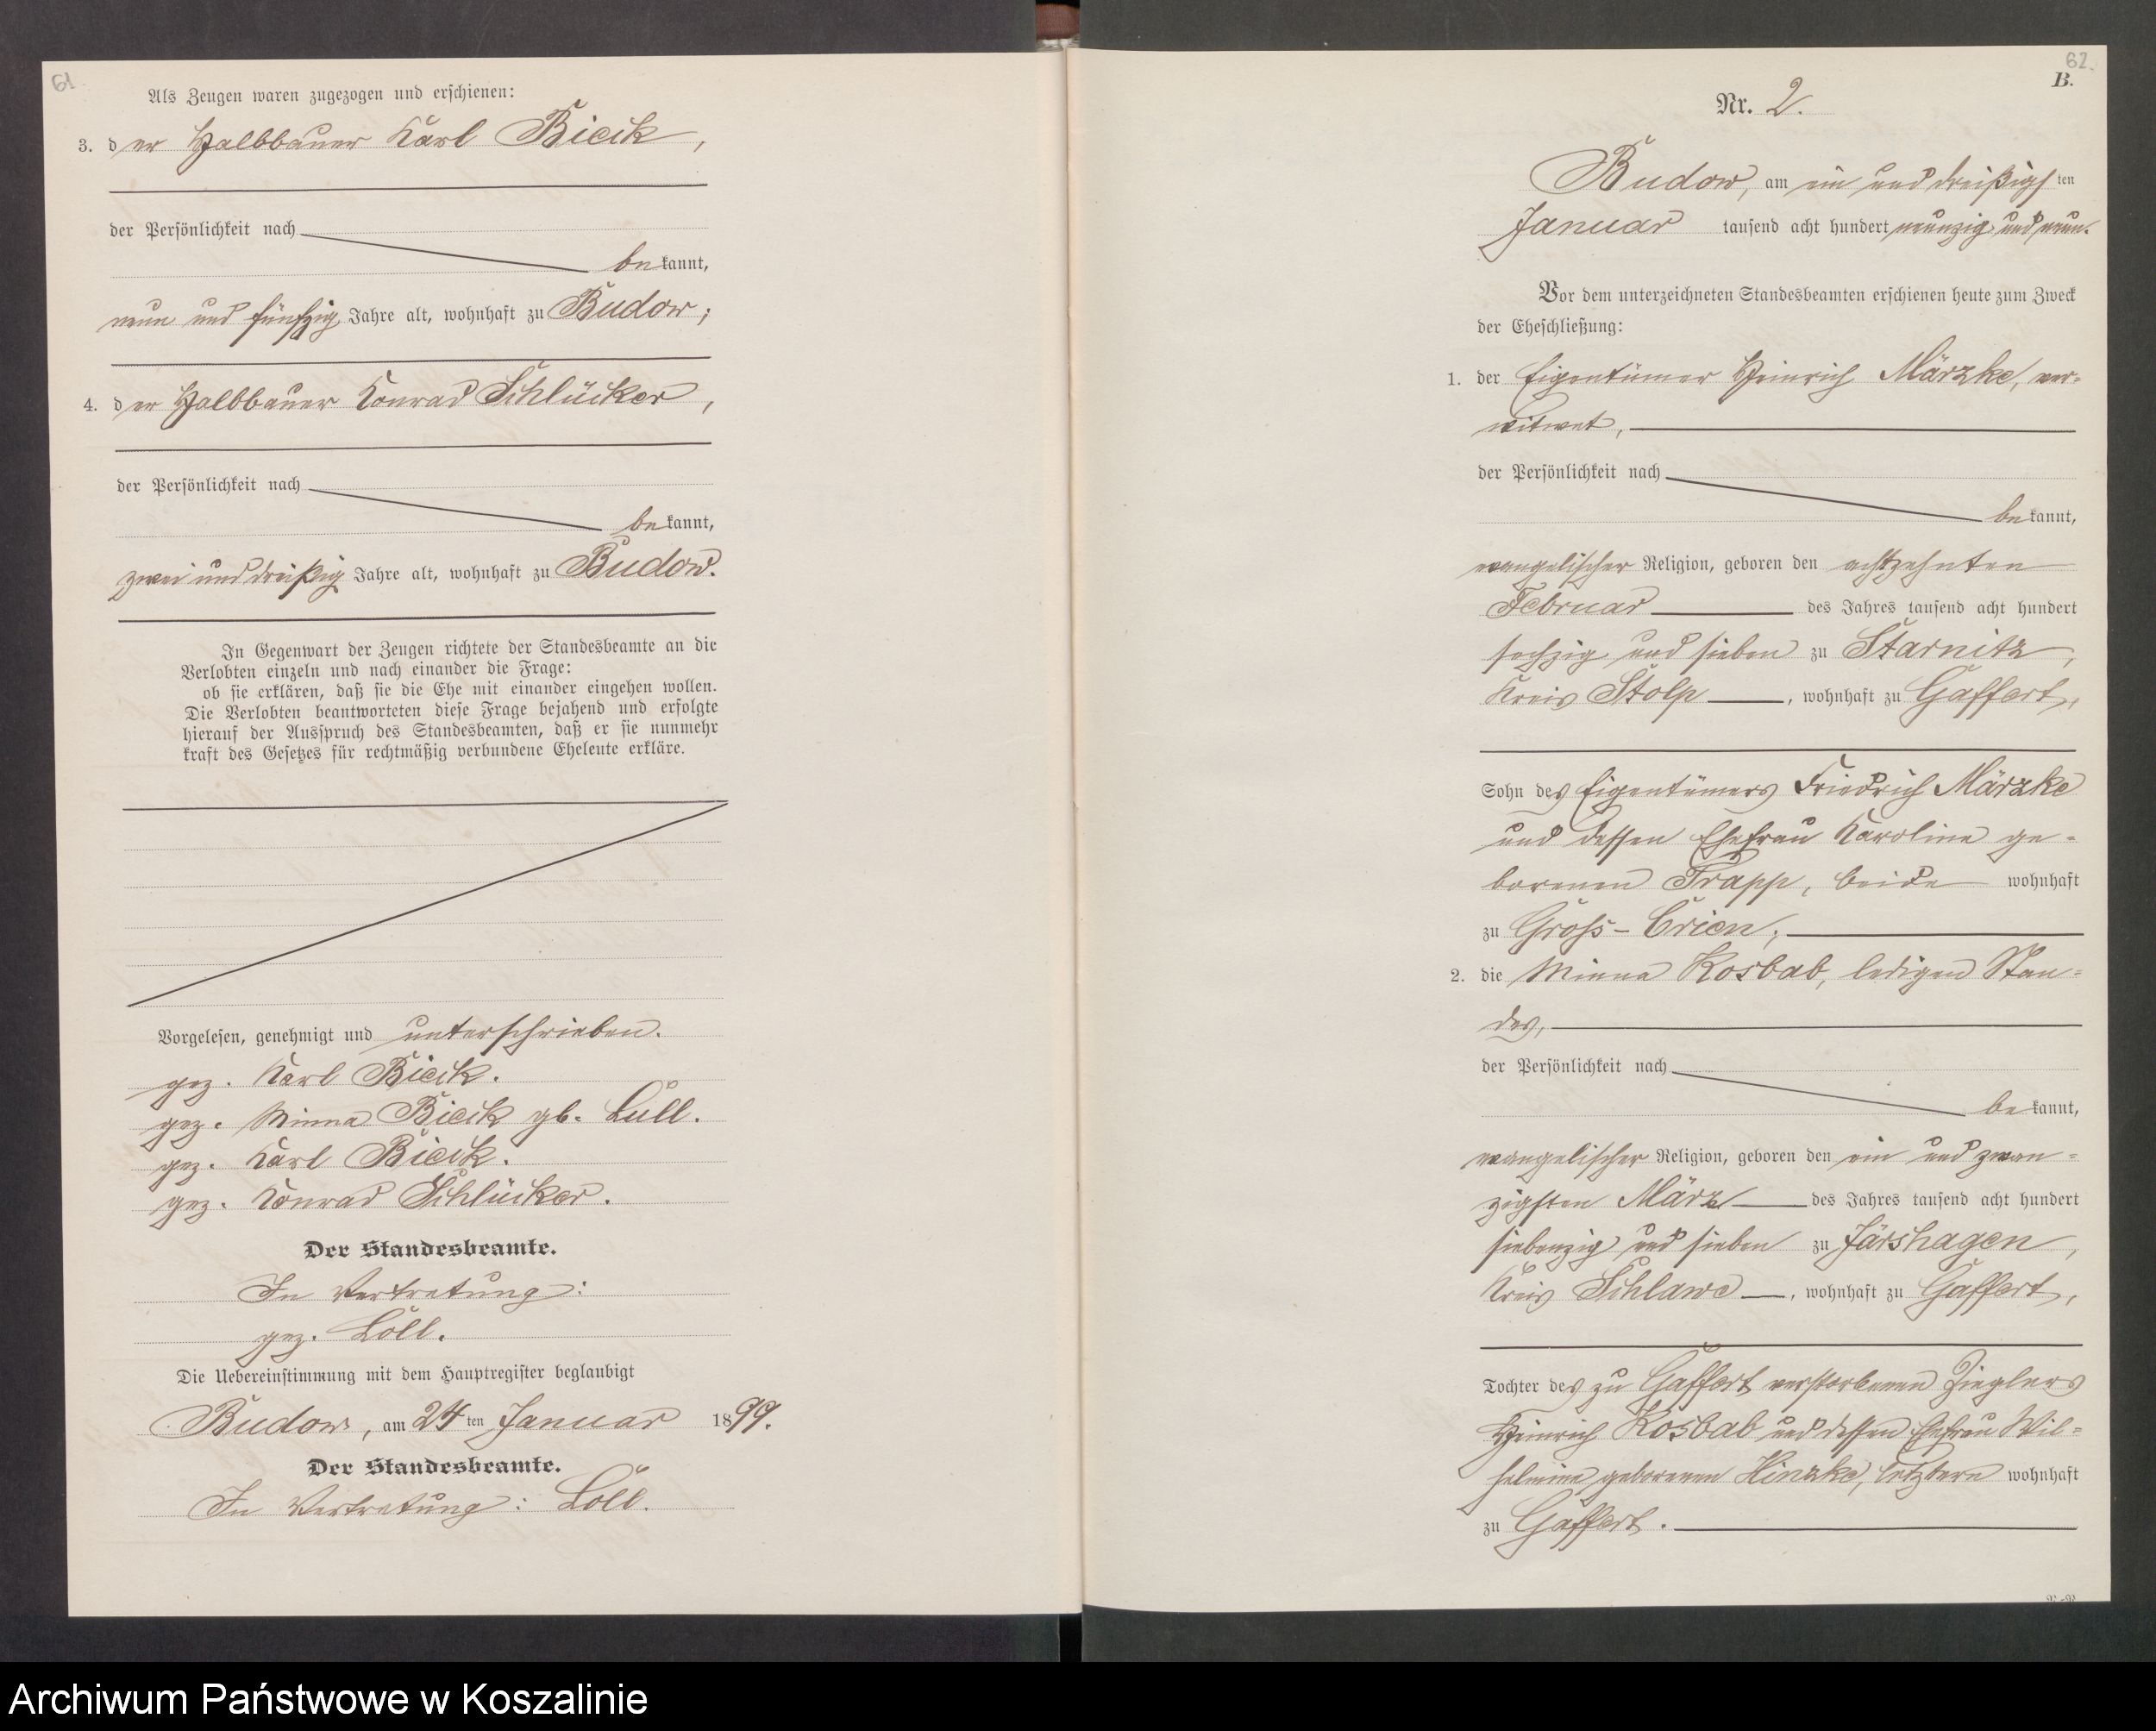 61
Als Zeugen waren zugezogen und erschienen:
3. der Halbbauer Karl Bieik,
der Persönlichkeit nach
bekannt,
neun und fünfzig Jahre alt, wohnhaft zu Budow;
4. der Halbbauer Konrad Schlücker,
der Persönlichkeit nach
bekannt,
zwei und dreißig Jahre alt, wohnhaft zu Budow.
In Gegenwart der Zeugen richtete der Standesbeamte an die
Verlobten einzeln und nach einander die Frage:
ob sie erklären, daß sie die Ehe mit einander eingehen wollen.
Die Verlobten beantworteten diese Frage bejahend und erfolgte
hierauf der Ausspruch des Standesbeamten, daß er sie nunmehr
kraft des Gesetzes für rechtmäßig verbundene Eheleute erkläre.
Vorgelesen, genehmigt und unterschrieben.
gez. Karl Bieik.
gez. Minna Bieik gb. Lüll.
gez. Karl Bieik.
gez. Konrad Schlücker.
Der Standesbeamte.
In Vertretung:
gez. Löll.
Die Uebereinstimmung mit dem Hauptregister beglaubigt
Budow, am 24ten Januar 1899.
Der Standesbeamte.
In Vertretung: Löll.
62.
B.
Nr. 2.
Budow, am ein und dreißigsten
Januar tausend acht hundert neunzig und neun.
Vor dem unterzeichneten Standesbeamten erschienen heute zum Zweck
der Eheschließung:
1. der Eigentümer Heinrich Märzke, ver-
witwet,
der Persönlichkeit nach
bekannt,
evangelischer Religion, geboren den achtzehnten
Februar des Jahres tausend acht hundert
sechzig und sieben zu Starnitz,
Kreis Stolp, wohnhaft zu Gaffert,
Sohn des Eigentümers Friedrich Märzke
und dessen Ehefrau Karoline ge-
borenen Trapp, beide wohnhaft
zu Groß-Crien;
2. die Minna Kosbab, ledigen Stan-
des,
der Persönlichkeit nach
bekannt,
evangelischer Religion, geboren den ein und zwan-
zigsten März des Jahres tausend acht hundert
siebenzig und sieben zu Järshagen,
Kreis Schlawe, wohnhaft zu Gaffert,
Tochter des zu Gaffert verstorbenen Zieglers
Heinrich Kosbab und dessen Ehefrau Wil-
helmine geborenen Hinzke, letztere wohnhaft
zu Gaffert.
Archiwum Państwowe w Koszalinie